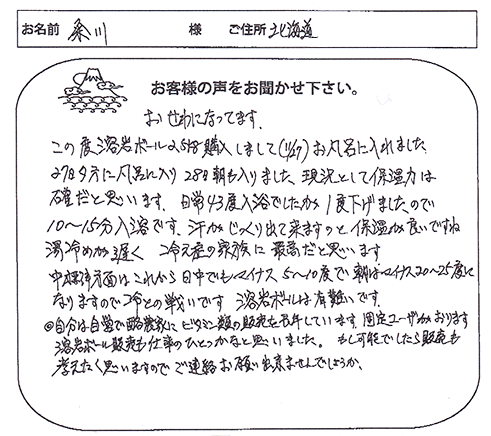 お名前 桑川 様 ご住所 北海道
お客様の声をお聞かせ下さい。
おせわになってます。
この度溶岩ボール2.5kg購入しまして(11/27)お風呂に入れました
27日夕方に風呂に入り 28日朝も入りました 現況として保温力は
確だと思います。 日常43度入浴でしたが 1度下げましたので
10〜15分入浴です。汗がじっくり出て来ますのと保温が良いですね
湯冷めが遅く 冷え症の家族に最高だと思います
方面はこれから日中でもマイナス5〜10度で朝はマイナス20〜25度に
なりますので冷との戦いです 溶岩ボールは有難いです。
◎自分は自営で酪農家にビタミン類の販売を長年しています。固定ユーザーがおります
溶岩ボール販売も仕事のひとつかなと思いました。 もし可能でしたら販売も
考えたく思いますのでご連絡お願い出来ませんでしょうか、